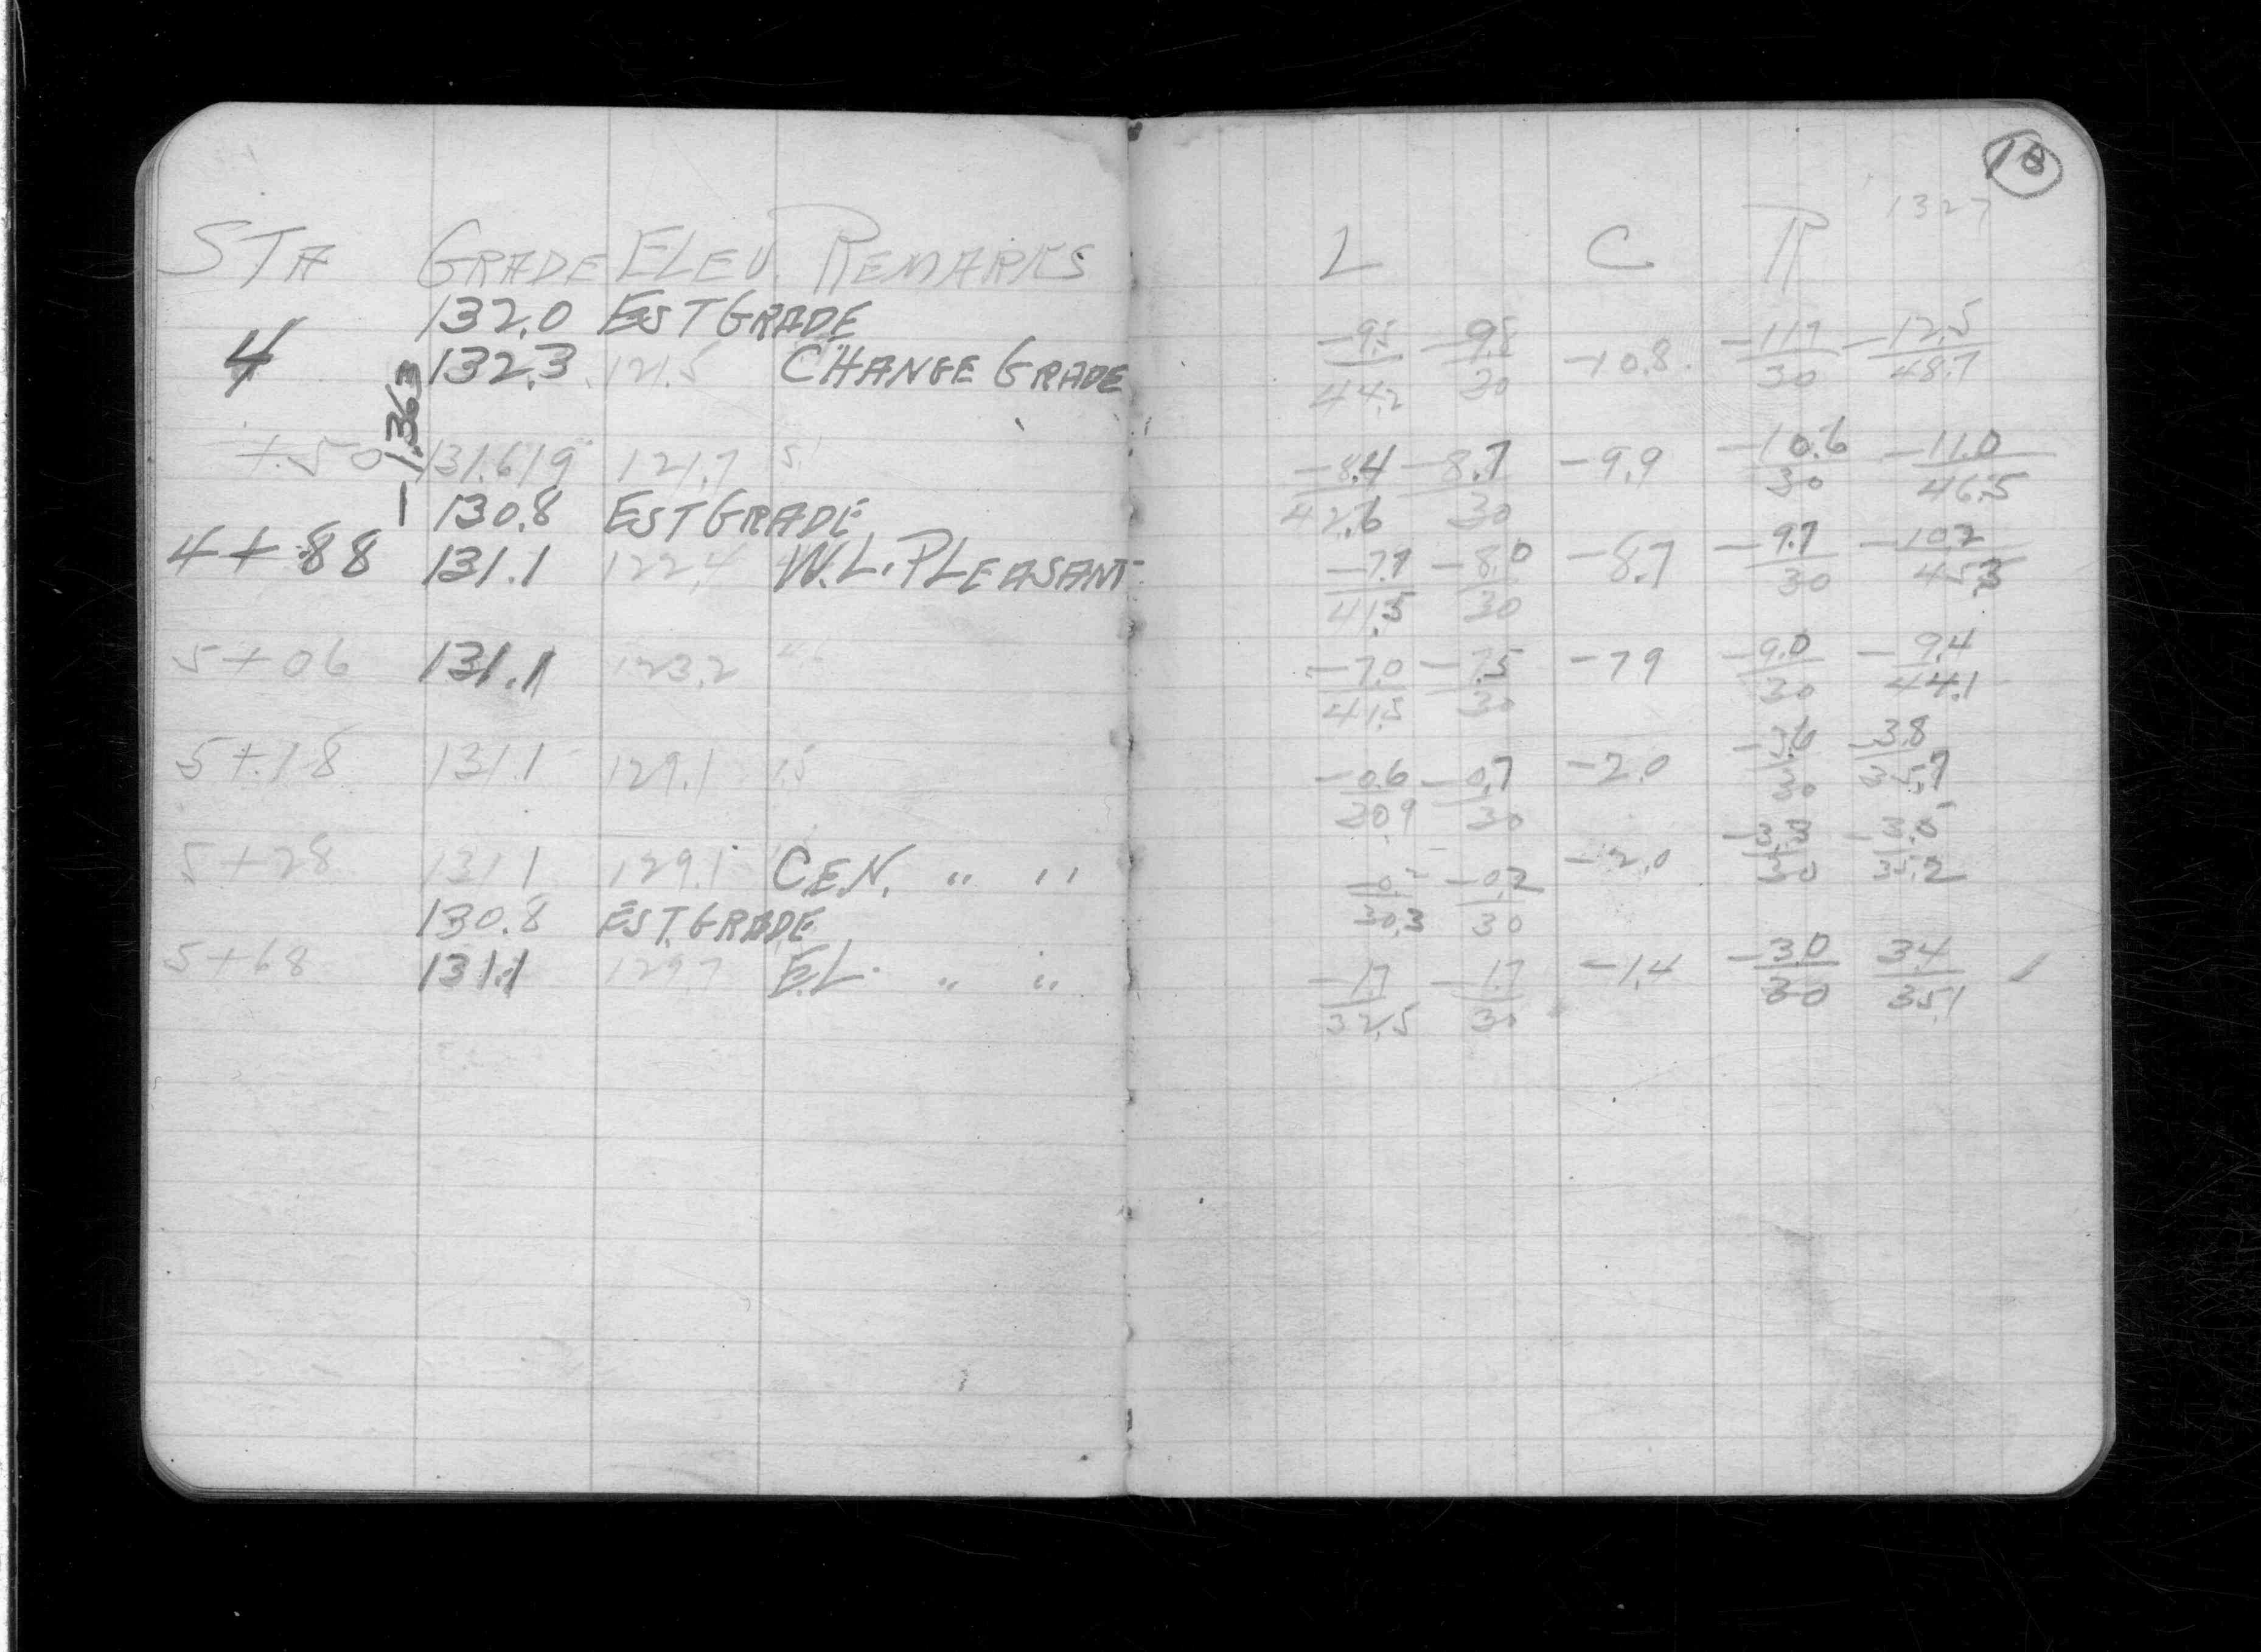 STA GRADE ELEV. REMARKS
132.0 EST GRADE
4 132.3 121.5 CHANGE GRADE
-1.363
+50 131.619 121.7
130.8 EST GRADE
4+88 131.1 122.4 W.L. PLEASANT
5+06 131.1 123.2
5+18 131.1 129.1 1.5
5+28 131.1 129.1 CEN. " "
130.8 EST. GRADE
5+68 131.1 129.7 E.L. " "
10
1327
L C R
-9.5 -9.8 -10.8 -11.9 -12.5
44.2 30 30 48.7
-8.4 -8.7 -9.9 -10.6 -11.0
42.6 30 30 46.5
-7.9 -8.0 -8.7 -9.7 -10.2
41.5 30 30 45.3
-7.0 -7.5 -7.9 -9.0 -9.4
41.5 30 30 44.1
-0.6 -0.7 -2.0 -3.6 -3.8
30.9 30 30 35.7
-0.2 -0.2 -2.0 -3.3 -3.5
30.3 30 30 35.2
-1.7 -1.7 -1.4 -3.0 3.4
32.5 30 30 35.1